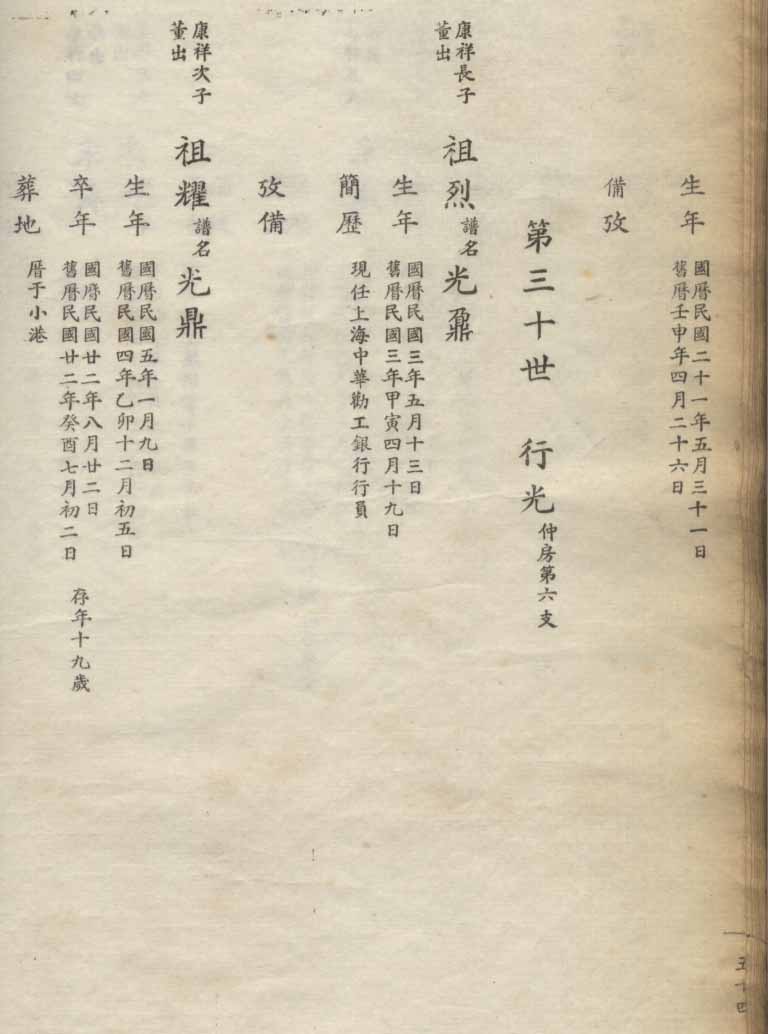 生年
國曆民國二十一年五月三十一日
舊曆壬申年四月二十六日
備攷
第三十世 行光 仲房第六支
康祥長子
董出
祖烈 譜名 光鼐
生年
國曆民國三年五月十三日
舊曆民國三年甲寅四月十九日
簡歷
現任上海中華勸工銀行行員
攷備
康祥次子
董出
祖耀 譜名 光鼎
生年
國曆民國五年一月九日
舊曆民國四年乙卯十二月初五日
卒年
國曆民國廿二年八月廿二日
舊曆民國廿二年癸酉七月初二日
存年十九歲
葬地
厝于小港
五十四